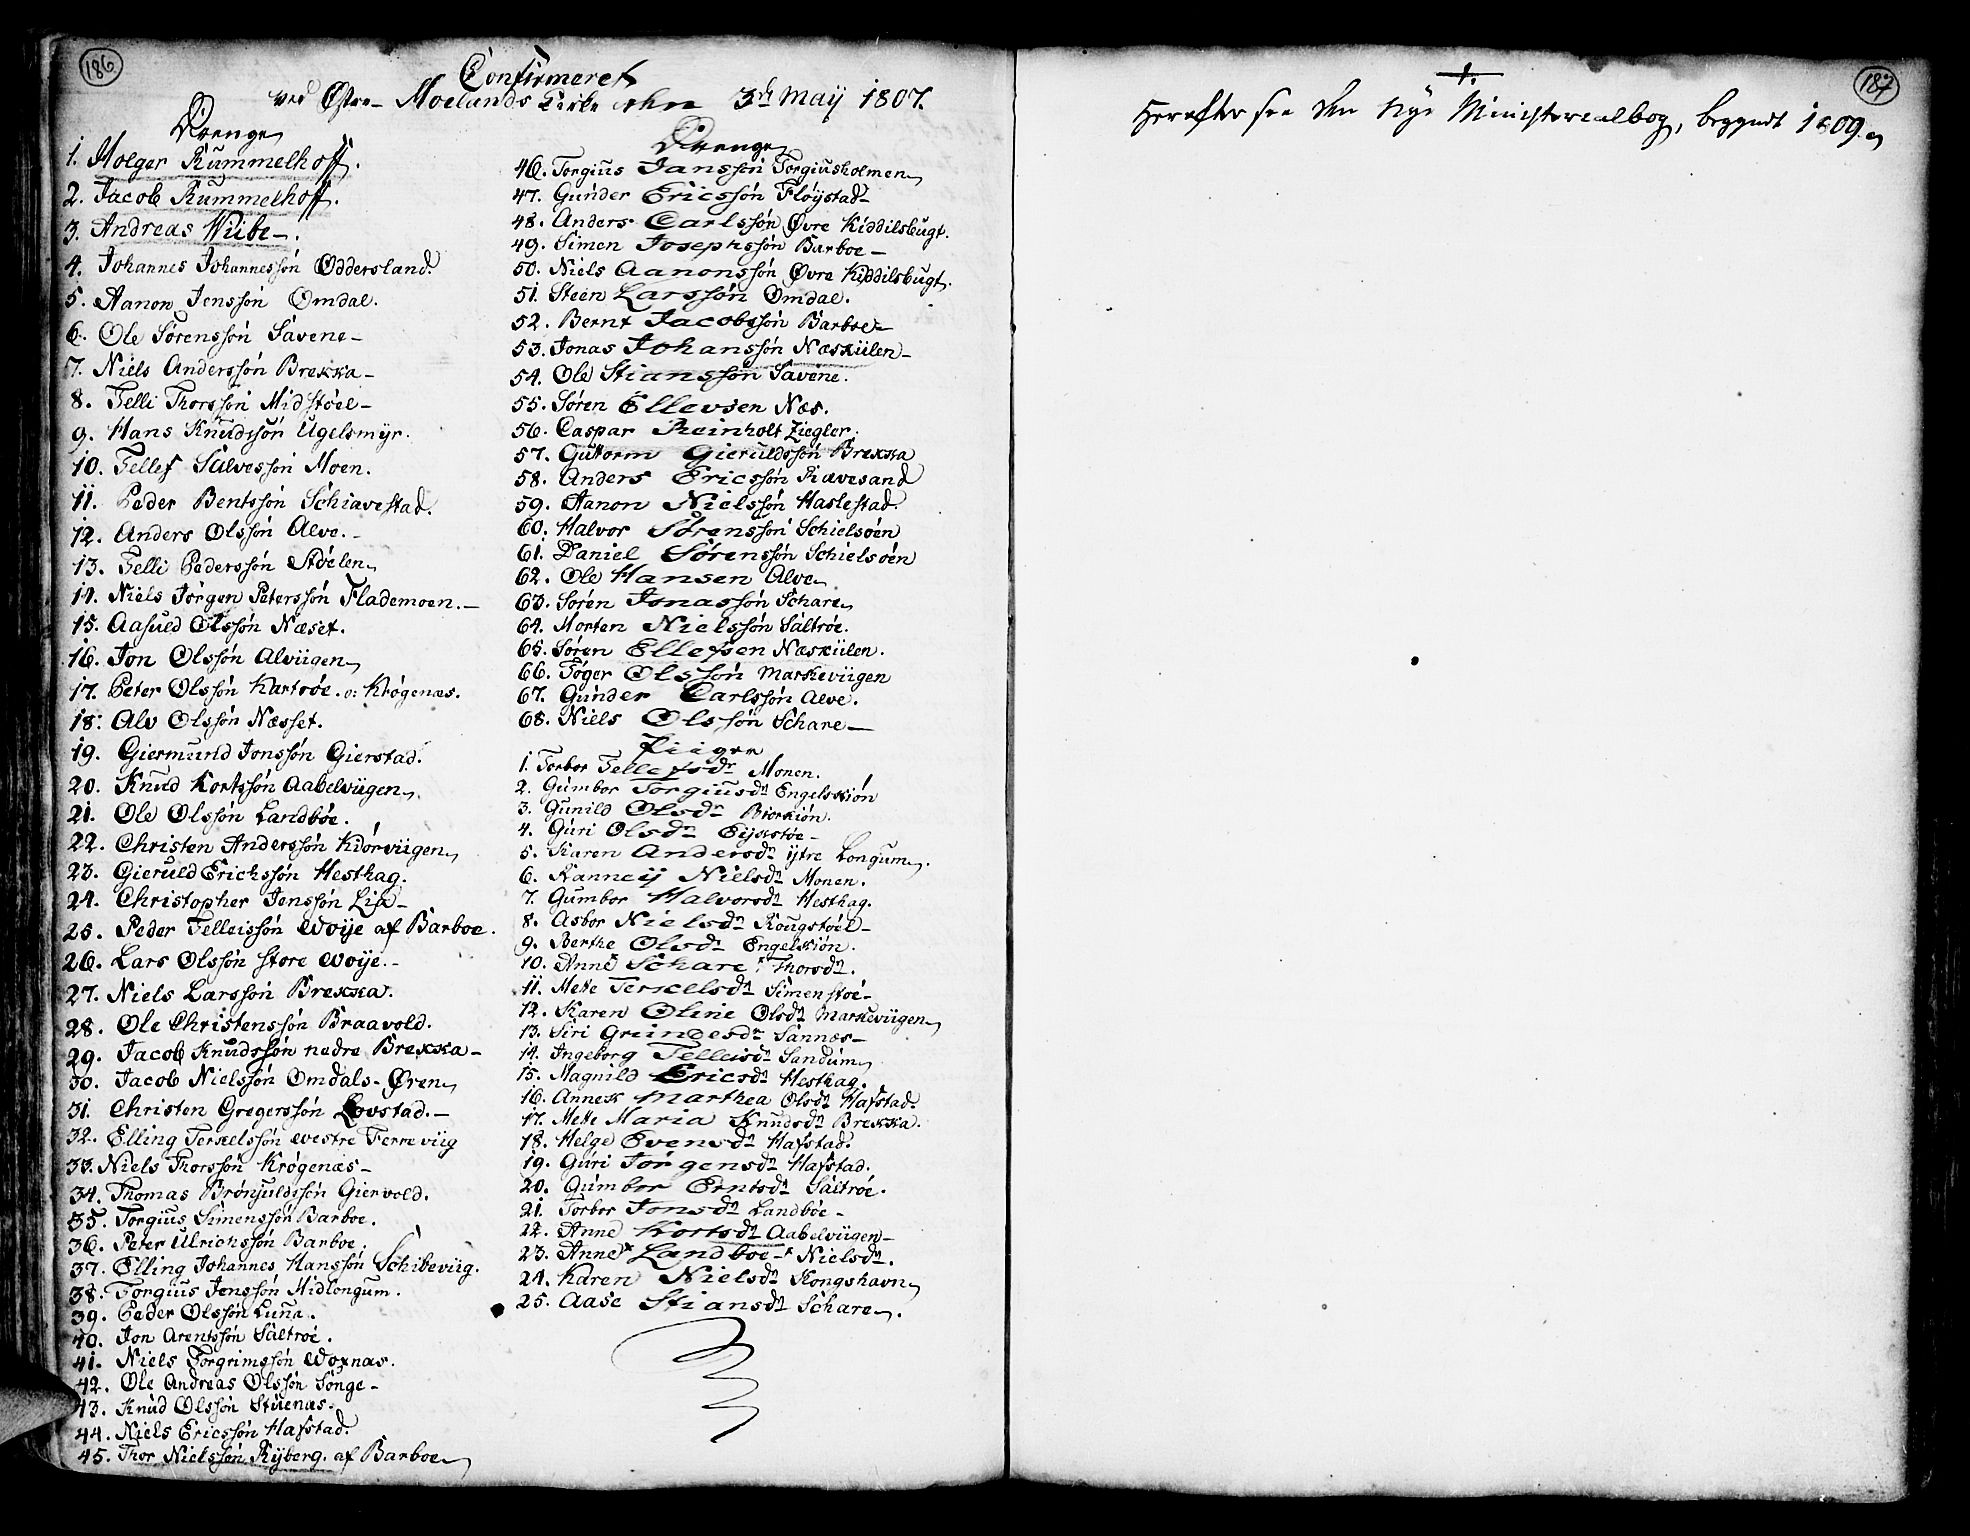 186
Confirmeret
ved Østre Moelands Kirke den 3de May 1807.
Drenge
1. Holger Rummelhoff.
2. Jacob Rummelhoff.
3. Andreas Wibe.
4. Johannes Johannessøn Oddersland.
5. Aanon Jenssøn Omdal.
6. Ole Sørenssøn Savene
7. Niels Anderssøn Brekka
8. Telli Thorssøn Midstøel
9. Hans Knudssøn Ugelsmyr.
10. Tellef Salvessøn Moen.
11. Peder Bentssøn Schiavestad.
12. Anders Olssøn Alve.
13. Telli Pederssøn Støelen
14. Niels Jørgen Peterssøn Flademoen.
15. Aasuld Olssøn Næset.
16. Jon Olssøn Alviigen
17. Peter Olssøn Kartrøe. o: Krøgenæs.
18. Alv Olssøn Næsset.
19. Giermund Jonssøn Gierstad.
20. Knud Kortssøn Aabelviigen
21. Ole Olssøn Landbøe.
22. Christen Anderssøn Kiørviigen
23. Gieruld Erichssøn Hesthag.
24. Christopher Jenssøn Lia
25. Peder Telleissøn Woije af Barboe.
26. Lars Olssøn store Woije.
27. Niels Larssøn Brekka.
28. Ole Christenssøn Braavold.
29. Jacob Knudssøn nedre Brekka
30. Jacob Nielssøn Omdals-Øren
31. Christen Gregerssøn Lovstad.
32. Elling Terkelssøn westre Ferreviig
33. Niels Thorssøn Krøgenæs
34. Thomas Brønjuldssøn Giervold.
35. Torgius Simenssøn Barboe.
36. Peter Ulrichssøn Barboe.
37. Elling Johannes Hanssøn Schibeviig.
38. Torgius Jenssøn Midlongum.
39. Peder Olssøn Luna.
40. Jon Arentssøn Saltrøe.
41. Niels Torgrimssøn Woxnæs.
42. Ole Andreas Olssøn Songe
43. Knud Olssøn Stuenæs.
44. Niels Ericssøn Hafstad.
45. Thor Nielssøn Ryberg. af Barboe
Drenge
46. Torgius Janssøn Torgiusholmen
47. Gunder Ericssøn Fløystad
48. Anders Carlssøn Øvre Kiddilsbugt.
49. Simen Josephssøn Barboe
50. Niels Aanonssøn Øvre Kiddilsbugt.
51. Steen Larssøn Omdal.
52. Bernt Jacobssøn Barboe
53. Jonas Johanssøn Næskiilen
54. Ole Stianssøn Savene.
55. Søren Ellevsen Næs.
56. Caspar Reinholt Ziegler.
57. Guttorm Gieruldssøn Brekka
58. Anders Ericssøn Rævesand
59. Aanon Nielssøn Haslestad.
60. Halvor Sørenssøn Schielsøen
61. Daniel Sørenssøn Schielsøen
62. Ole Hansen Alve
63. Søren Jonassøn Schare
64. Morten Nielssøn Saltrøe.
65. Søren Ellefsen Næskiilen.
66. Tøger Olssøn Markeviigen
67. Gunder Carlssøn Alve.
68. Niels Olssøn Schare
Piiger
1. Torbor Tellefsdr Monen.
2. Gumbor Torgiusdr Engelskiøn
3. Gunild Olsdr Biorkiøn.
4. Guri Olsdr Eijkstøe
5. Karen Andersdr ijtre Longum.
6. Ranneij Nielsdr Monen.
7. Gumbor Halvorsdr Hesthag.
8. Asbor Nielsdr Rougstøel
9. Berthe Olsdr Engelskiøn.
10. Anne Schare Thorsdr.
11. Mette Terkelsdr Simenstøe
12. Karen Oline Olsdr Markeviigen
13. Siri Grundesdr Sannæs
14. Ingeborg Telleisdr Sandum
15. Magnild Ericsdr Hesthag.
16. Anne Marthea Olsdr Hafstad.
17. Mette Maria Knudsdr Brekka.
18. Helge Evensdr Hafstad.
19. Guri Jørgensdr Hafstad.
20. Gumbor Erntsdr Saltrøe.
21. Torbor Jonsdr Landbøe
22. Anne Kortsdr Aabelviigen
23. Anne Landboe Nielsdr.
24. Karen Nielsdr Kongshavn
25. Aase Stiansdr Schare.
187
1.
Herefter see den nye Ministerealbog, begyndt 1809.